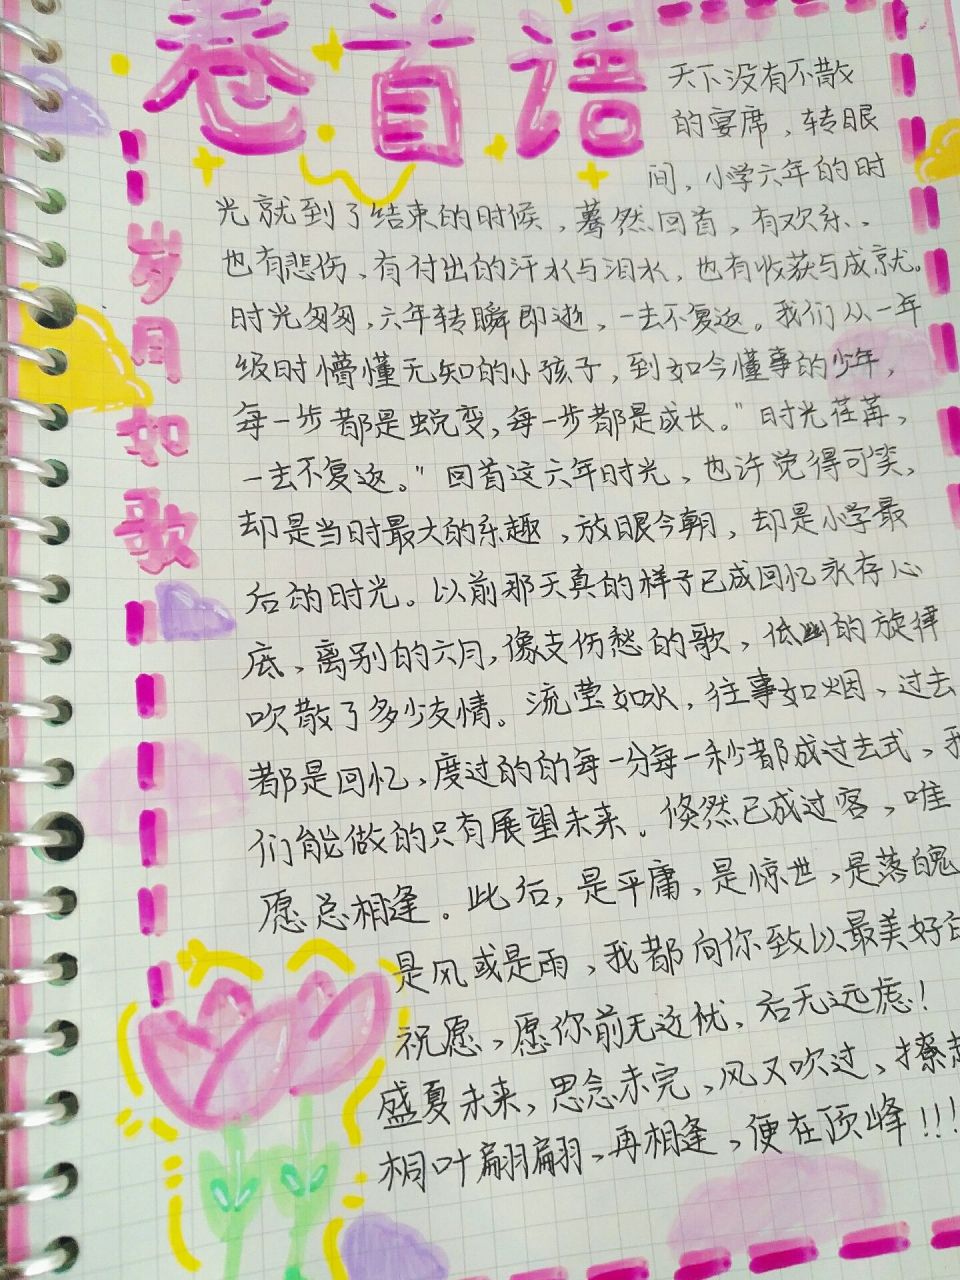 卷首语
岁月如歌
天下没有不散
的宴席，转眼
间，小学六年的时
光就到了结束的时候，蓦然回首，有欢乐、
也有悲伤，有付出的汗水与泪水，也有收获与成就。
时光匆匆，六年转瞬即逝，一去不复返。我们从一年
级时懵懂无知的小孩子，到如今懂事的少年，
每一步都是蜕变，每一步都是成长。"时光荏苒，
一去不复返。"回首这六年时光，也许觉得可笑，
却是当时最大的乐趣，放眼今朝，却是小学最
后的时光。以前那天真的样子已成回忆永存心
底，离别的六月，像支伤愁的歌，低幽的旋律
吹散了多少友情。流莹如水，往事如烟，过去
都是回忆，度过的的每一分每一秒都成过去式，我
们能做的只有展望未来。倏然已成过客，唯
愿总相逢。此后，是平庸，是惊世，是落魄
是风或是雨，我都向你致以最美好的
祝愿，愿你前无近忧，右无远虑！
盛夏未来，思念未完，风又吹过，撩起
桐叶翩翩，再相逢，便在顶峰！！！